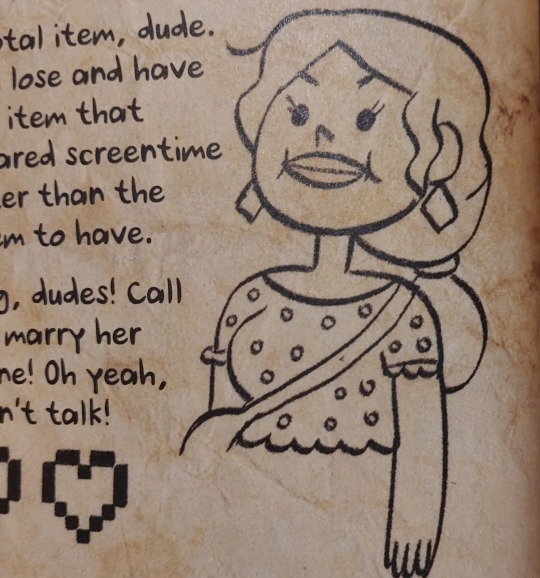 item, dude.
lose and have
item that
screentime
than the
to have.
dudes! Call
marry her
Oh yeah,
talk!